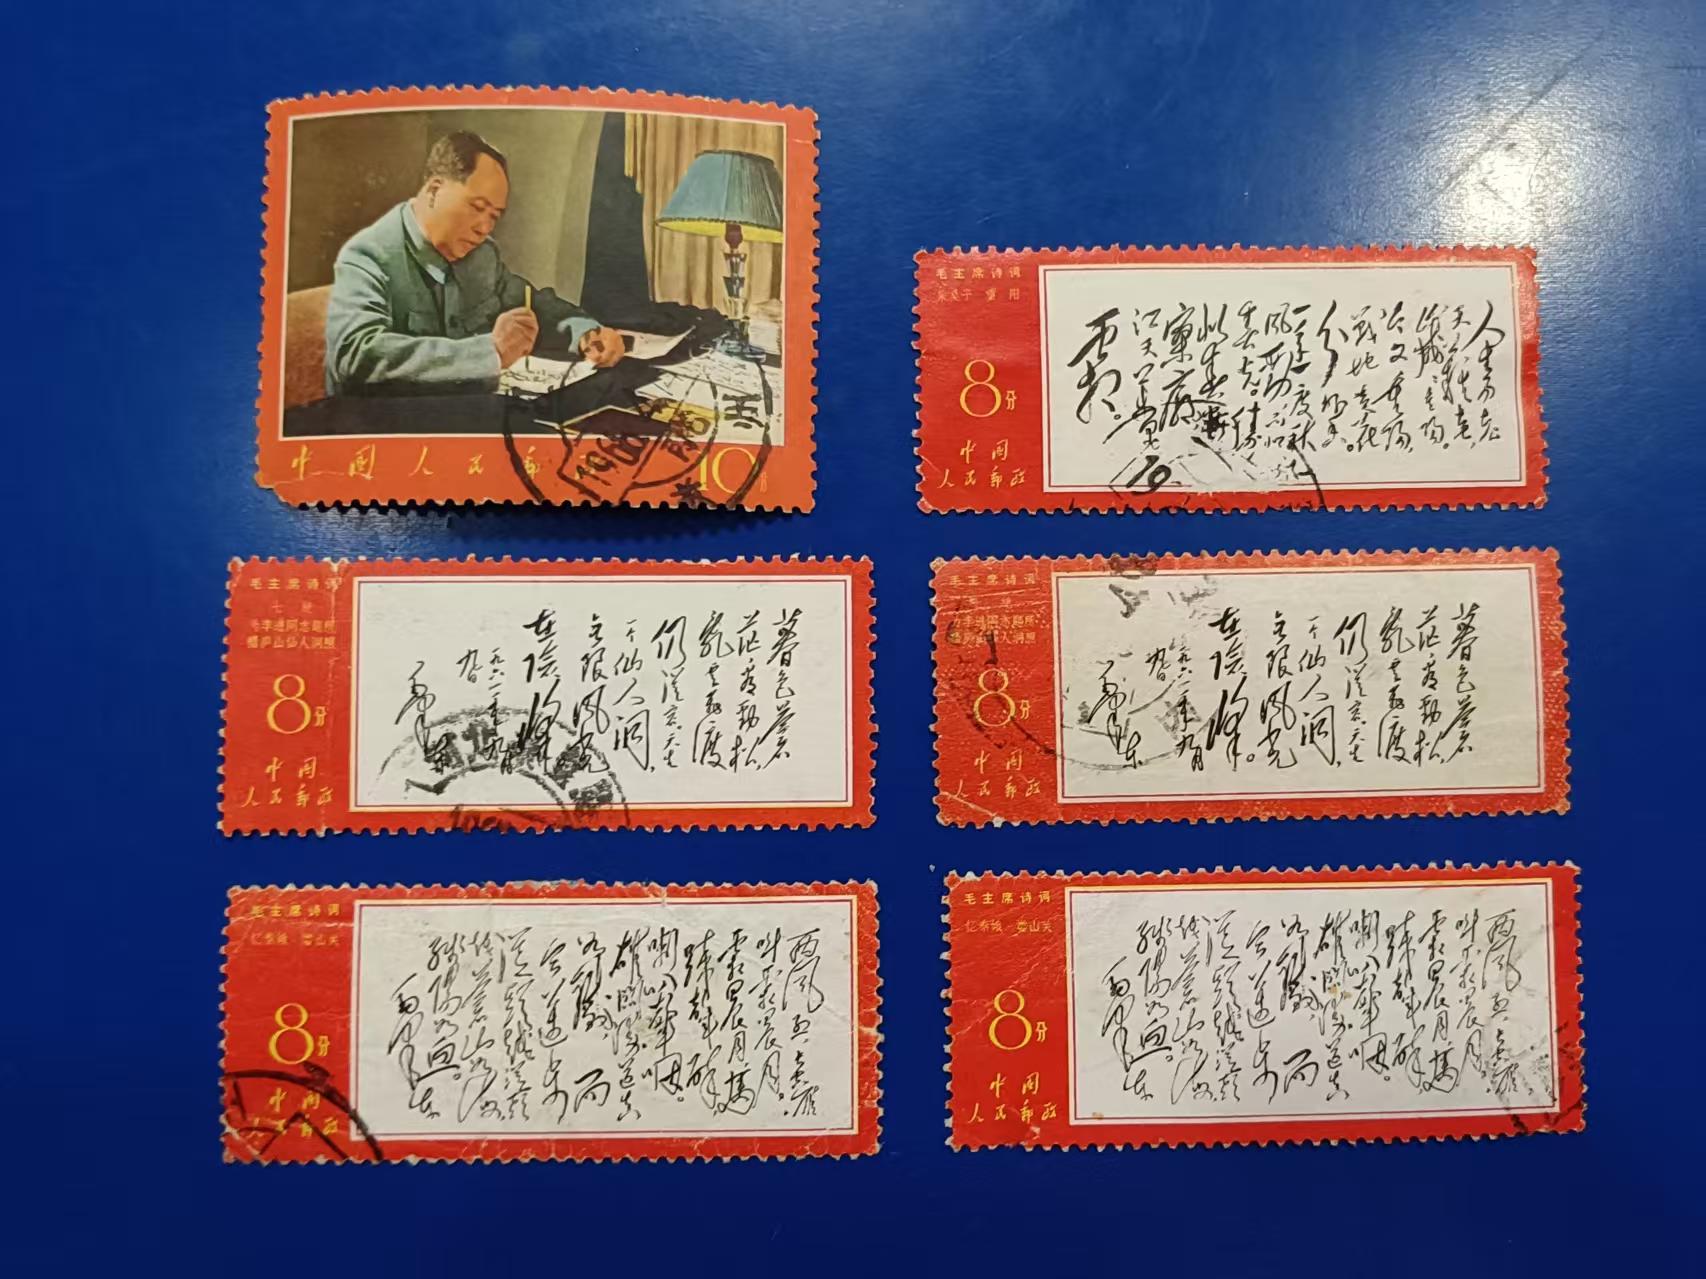 中国人民邮
10分
毛主席诗词
采桑子 重阳
8分
中国
人民邮政
人生易老
天难老,
岁岁重阳。
今又重阳,
战地黄花
分外香。
一年一度秋
风劲,不似
春光。胜
似春光,
寥廓
江天万里
霜。
毛主席诗词
七绝
为李进同志题所
摄庐山仙人洞照
8分
中国
人民邮政
暮色苍
茫看劲松,
乱云飞渡
仍从容。天生
一个仙人洞,
无限风光
在险峰。
一九六一年九月
九日
毛泽东
毛主席诗词
七绝
为李进同志题所
摄庐山仙人洞照
8分
中国
人民邮政
暮色苍
茫看劲松,
乱云飞渡
仍从容。天生
一个仙人洞,
无限风光
在险峰。
一九六一年九月
九日
毛泽东
毛主席诗词
忆秦娥 娄山关
8分
中国
人民邮政
西风烈,长空雁
叫霜晨月。
霜晨月,马
蹄声碎,
喇叭声咽。
雄关漫道真
如铁,而
今迈步
从头越。从头
越,苍山如海,
残阳如血。
毛泽东
毛主席诗词
忆秦娥 娄山关
8分
中国
人民邮政
西风烈,长空雁
叫霜晨月。
霜晨月,马
蹄声碎,
喇叭声咽。
雄关漫道真
如铁,而
今迈步
从头越。从头
越,苍山如海,
残阳如血。
毛泽东